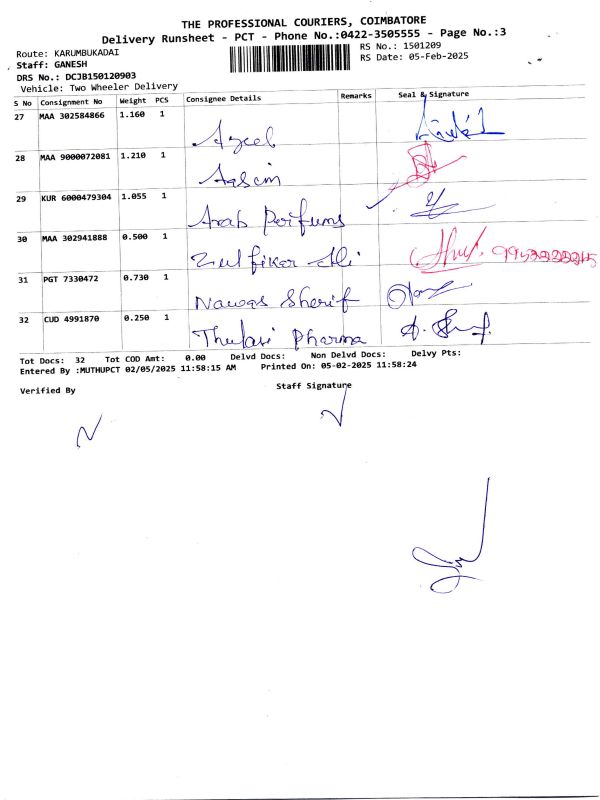 THE PROFESSIONAL COURIERS, COIMBATORE
Delivery Runsheet - PCT - Phone No.:0422-3505555 - Page No.:3
Route: KARUMBUKADAI
RS No.: 1501209
Staff: GANESH
RS Date: 05-Feb-2025
DRS No.: DCJB150120903
Vehicle: Two Wheeler Delivery
S No Consignment No Weight PCS Consignee Details Remarks Seal & Signature
27 MAA 302584866 1.160 1
28 MAA 9000072081 1.210 1
29 KUR 6000479304 1.055 1 Arab Perfums
30 MAA 302941888 0.500 1 Zulfiker Ali
31 PGT 7330472 0.730 1 Nawas Sherif
32 CUD 4991870 0.250 1 Thulasi Pharma
Tot Docs: 32 Tot COD Amt: 0.00 Delvd Docs: Non Delvd Docs: Delvy Pts:
Entered By :MUTHUPCT 02/05/2025 11:58:15 AM Printed On: 05-02-2025 11:58:24
Verified By
Staff Signature